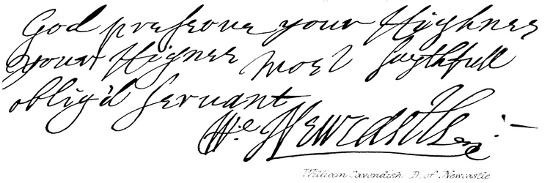 God preserve your Highnes
your Highnes most faythfull
oblig'd Servant
We Newcastle :-
William Cavendish D. of Newcastle